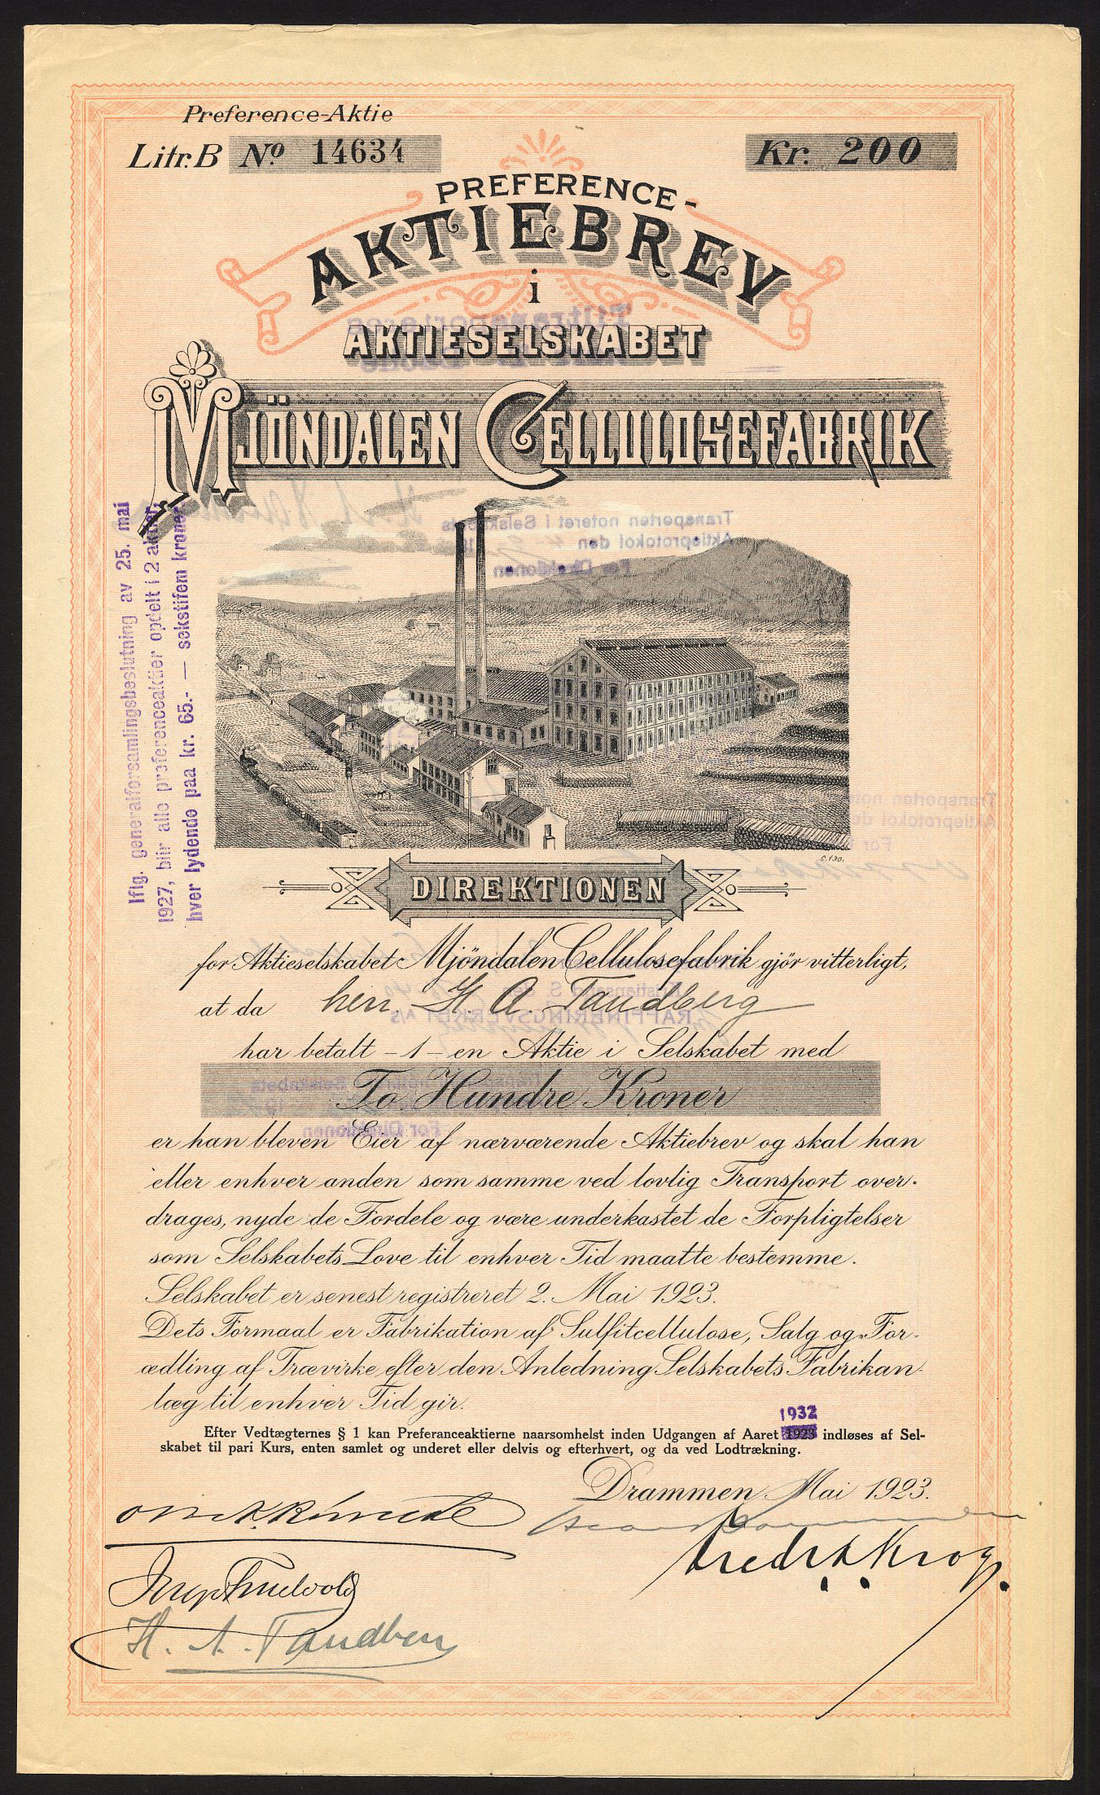 Preference-Aktie
Litr. B No 14634
Kr. 200
PREFERENCE-
AKTIEBREV
i
AKTIESELSKABET
MJÖNDALEN CELLULOSEFABRIK
Iflg. generalforsamlingsbeslutning av 25. mai
1927, blir alle preferenceaktier opdelt i 2 aktier,
hver lydende paa kr. 65.- — sekstifem kroner
Transporten noteret i Selskabets
Aktieprotokol den
For Direktionen
DIREKTIONEN
for Aktieselskabet Mjöndalen Cellulosefabrik gjör vitterligt,
at da herr. H. A. Tandberg
har betalt -1- en Aktie i Selskabet med
To Hundre Kroner
er han bleven Eier af nærværende Aktiebrev og skal han
eller enhver anden som samme ved lovlig Transport over-
drages, nyde de Fordele og være underkastet de Forpligtelser
som Selskabets Love til enhver Tid maatte bestemme.
Selskabet er senest registreret 2. Mai 1923.
Dets Formaal er Fabrikation af Sulfitcellulose, Salg og For-
ædling af Trævirke efter den Anledning Selskabets Fabrikan-
læg til enhver Tid gir.
1932
Efter Vedtægternes § 1 kan Preferanceaktierne naarsomhelst inden Udgangen af Aaret 1923 indløses af Sel-
skabet til pari Kurs, enten samlet og underet eller delvis og efterhvert, og da ved Lodtrækning.
Drammen Mai 1923.
Fredrik Krog.
H. A. Tandberg